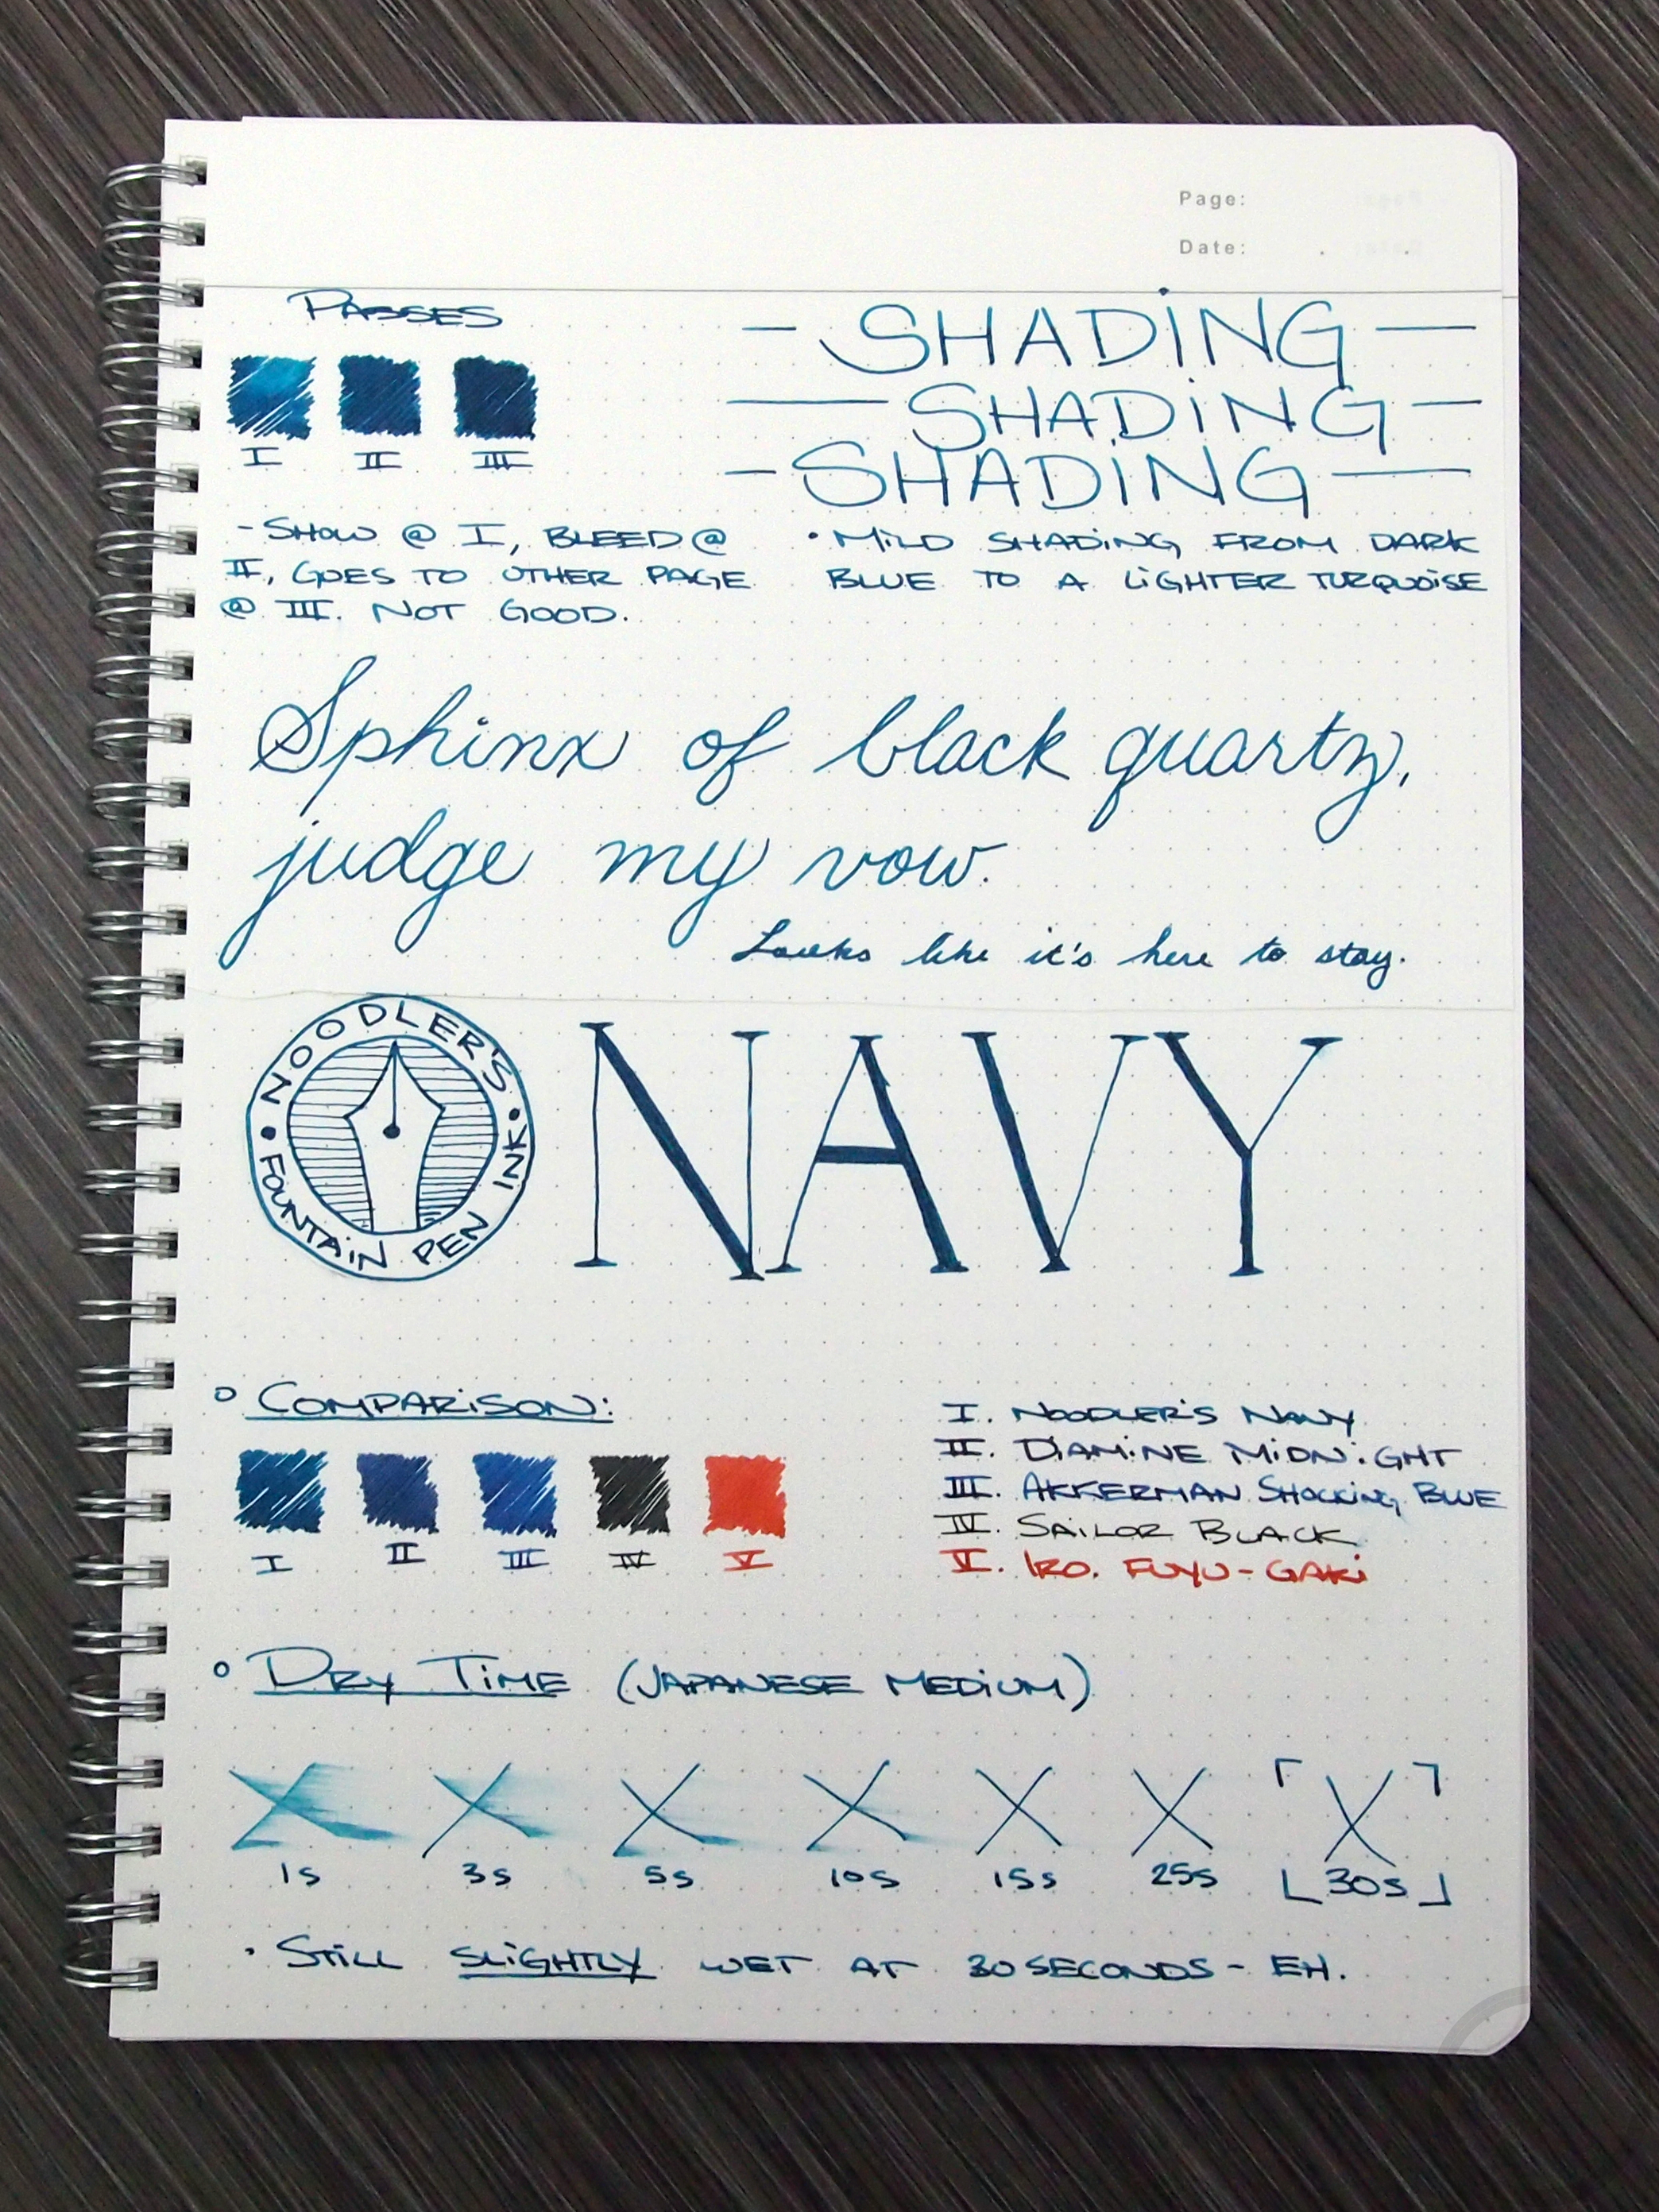 Page:
Date: . .
PASSES
I II III
- SHOW @ I, BLEED @
II, GOES TO OTHER PAGE
@ III. NOT GOOD.
— SHADING —
— SHADING —
— SHADING —
• MILD SHADING FROM DARK
BLUE TO A LIGHTER TURQUOISE
Sphinx of black quartz,
judge my vow.
Looks like it's here to stay.
• NOODLER'S •
FOUNTAIN PEN INK
NAVY
° COMPARISON:
I II III IV V
I. NOODLER'S NAVY
II. DIAMINE MIDNIGHT
III. AKKERMAN SHOCKING BLUE
IV. SAILOR BLACK
V. IRO. FUYU-GAKI
° DRY TIME (JAPANESE MEDIUM)
X X X X X X X
1s 3s 5s 10s 15s 25s 30s
• STILL SLIGHTLY WET AT 30 SECONDS - EH.